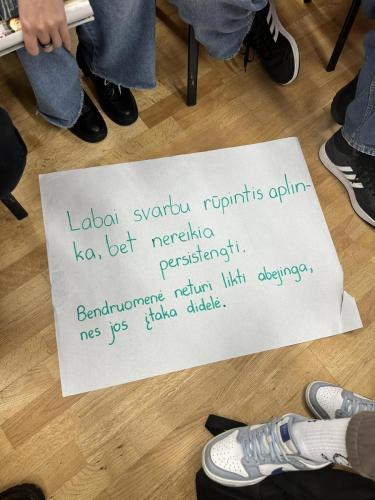 Labai svarbu rūpintis aplin-
ka, bet nereikia
persistengti.
Bendruomenė neturi likti abejinga,
nes jos įtaka didelė.